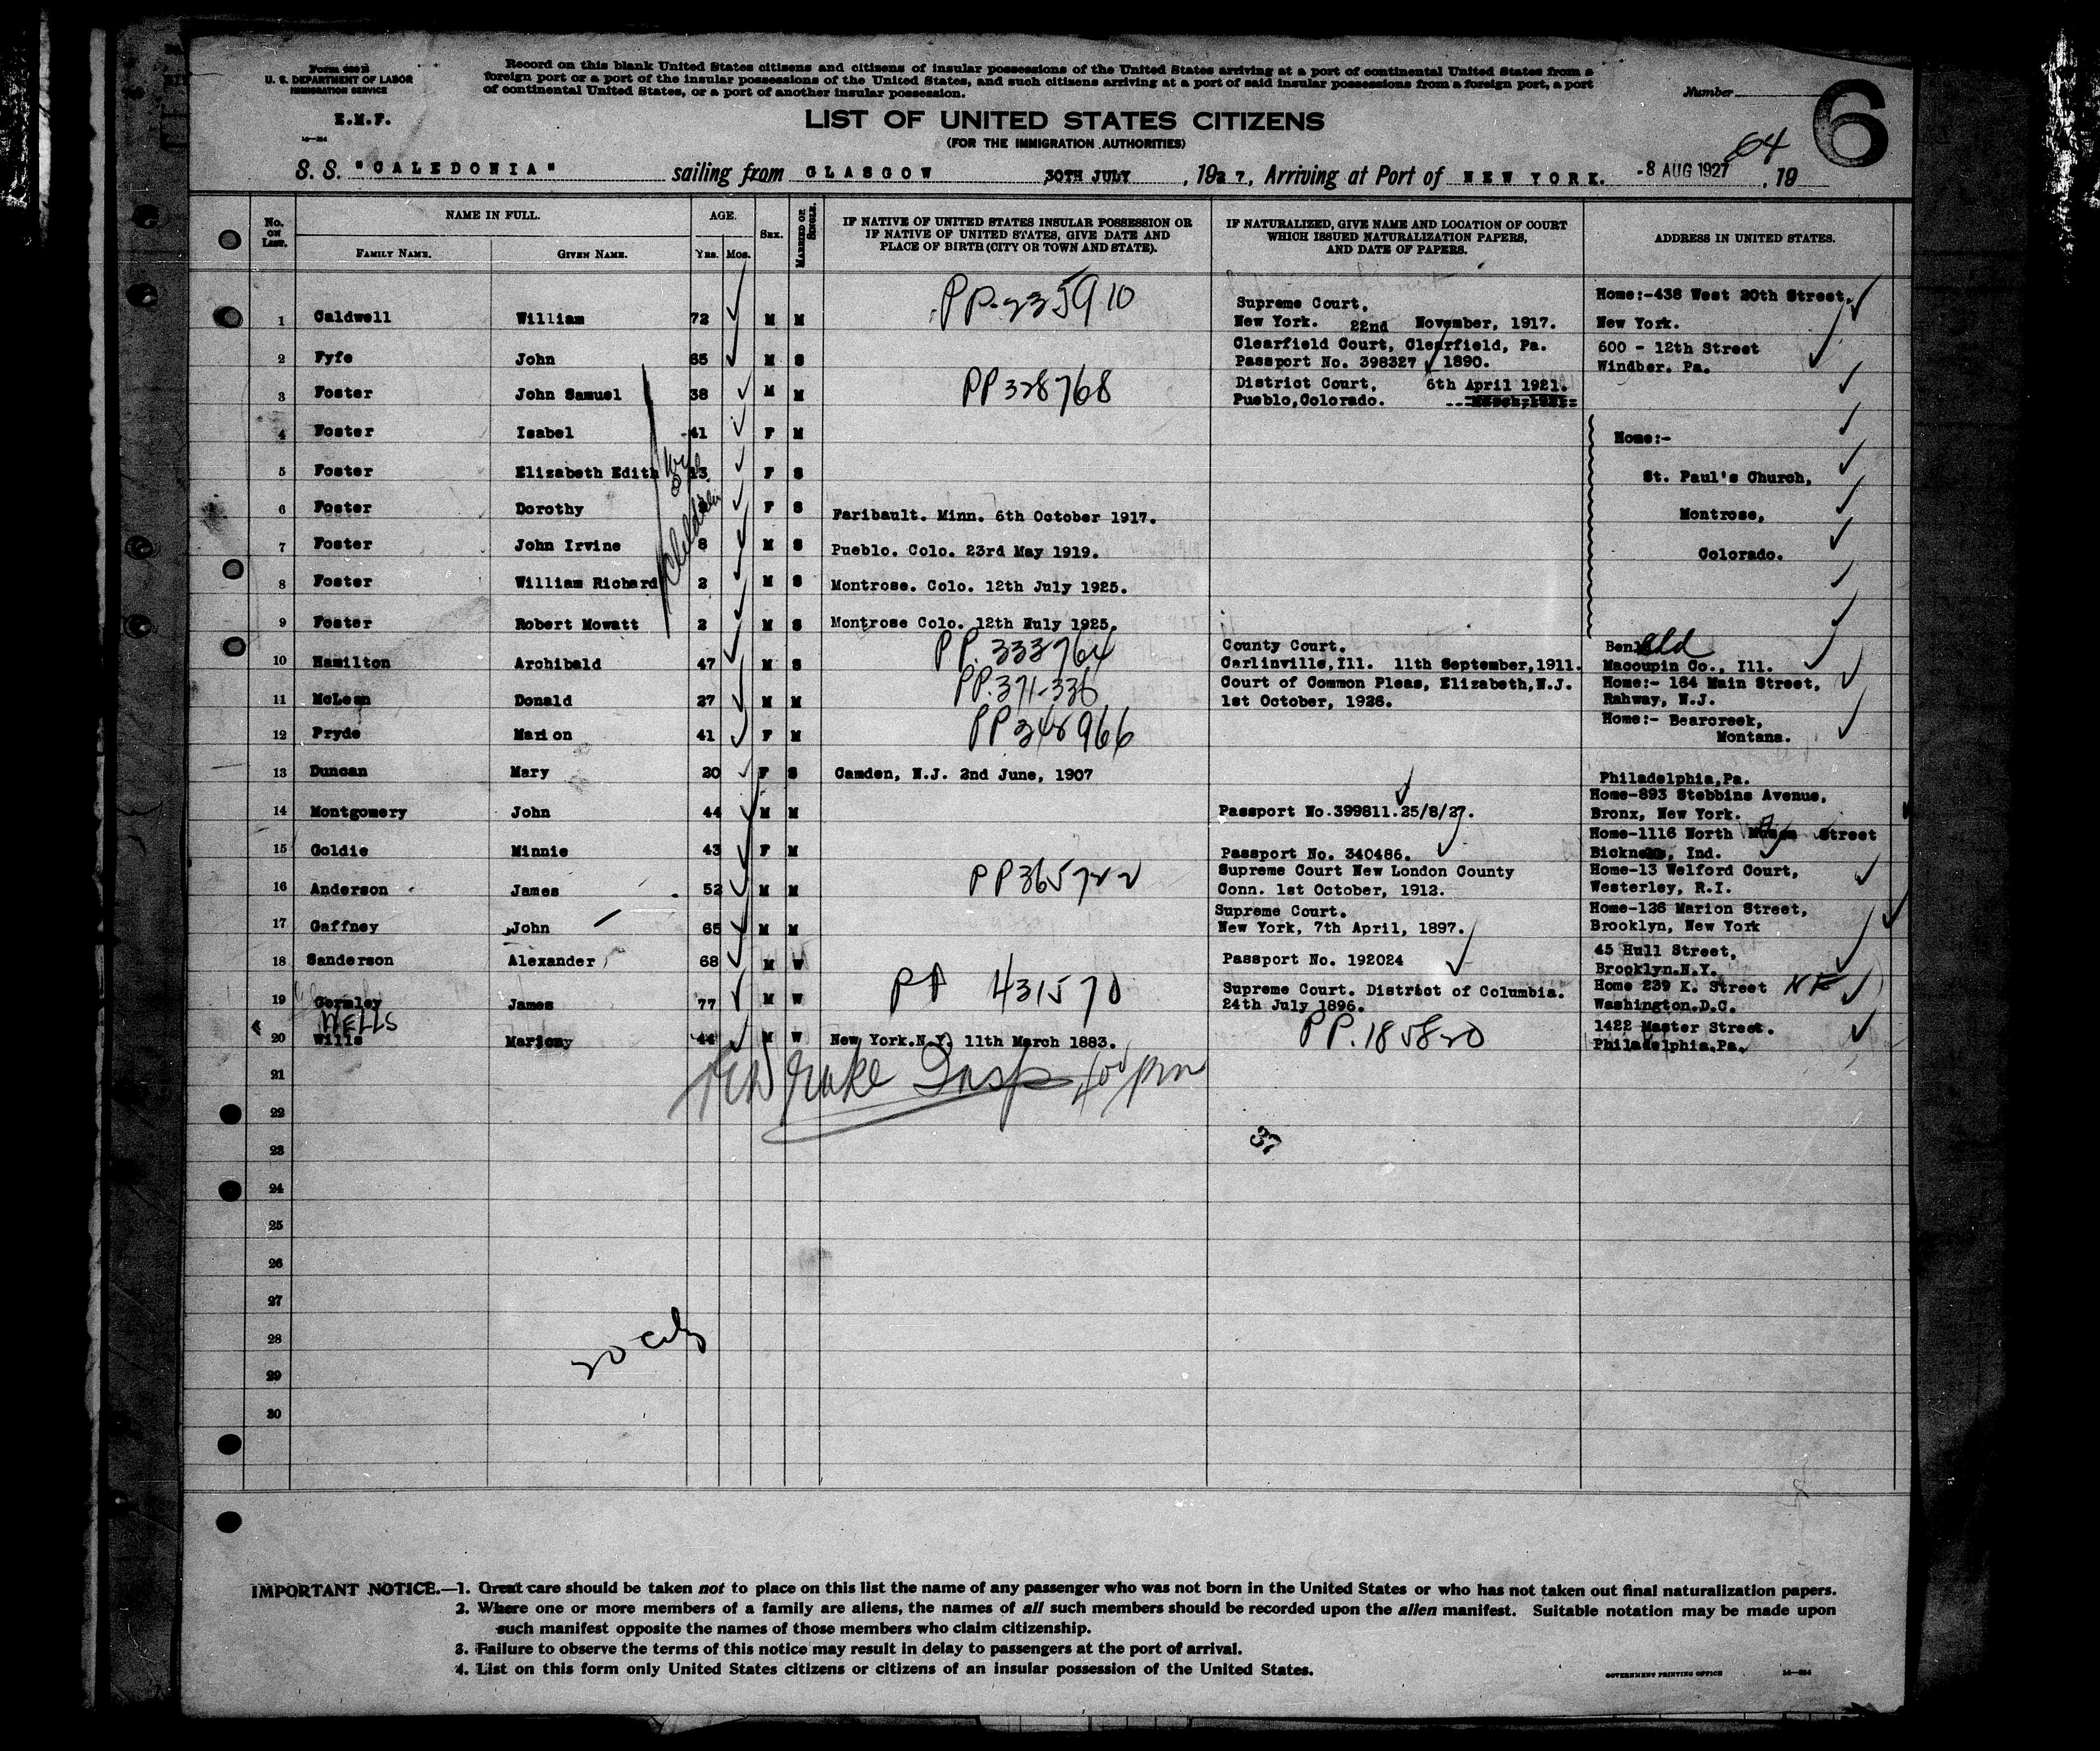 Form 630 B
U. S. DEPARTMENT OF LABOR
IMMIGRATION SERVICE
E.M.F.
Record on this blank United States citizens and citizens of insular possessions of the United States arriving at a port of continental United States from a
foreign port or a port of the insular possessions of the United States, and such citizens arriving at a port of said insular possessions from a foreign port, a port
of continental United States, or a port of another insular possession.
Number
6
LIST OF UNITED STATES CITIZENS
(FOR THE IMMIGRATION AUTHORITIES)
64
S. S. "CALEDONIA" sailing from GLASGOW 30TH JULY, 1927, Arriving at Port of NEW YORK. -8 AUG 1927, 19
No. ON LIST. NAME IN FULL. AGE. SEX. MARRIED OR SINGLE. IF NATIVE OF UNITED STATES INSULAR POSSESSION OR IF NATIVE OF UNITED STATES, GIVE DATE AND PLACE OF BIRTH (CITY OR TOWN AND STATE). IF NATURALIZED, GIVE NAME AND LOCATION OF COURT WHICH ISSUED NATURALIZATION PAPERS, AND DATE OF PAPERS. ADDRESS IN UNITED STATES.
FAMILY NAME. GIVEN NAME. YRS. MOS.
1 Caldwell William 72 M M PP-235910 Supreme Court, New York. 22nd November, 1917. Home:-438 West 20th Street, New York.
2 Fyfe John 65 M S Clearfield Court, Clearfield, Pa. Passport No. 398327 1890. 600 - 12th Street Windber. Pa.
3 Foster John Samuel 38 M M PP 328768 District Court, 6th April 1921. Pueblo, Colorado.
4 Foster Isabel 41 F M Home:-
5 Foster Elizabeth Edith 13 F S St. Paul's Church,
6 Foster Dorothy F S Faribault. Minn. 6th October 1917. Montrose,
7 Foster John Irvine 8 M S Pueblo. Colo. 23rd May 1919. Colorado.
8 Foster William Richard 2 M S Montrose. Colo. 12th July 1925.
9 Foster Robert Mowatt 2 M S Montrose Colo. 12th Huly 1925.
children
10 Hamilton Archibald 47 M S PP. 333764 County Court. Carlinville, Ill. 11th September, 1911. Benld Macoupin Co., Ill.
11 McLean Donald 27 M M PP. 371-336 Court of Common Pleas, Elizabeth, N.J. 1st October, 1926. Home:- 164 Main Street, Rahway, N.J.
12 Pryde Marion 41 F M PP 348966 Home:- Bearcreek, Montana.
13 Duncan Mary 20 F S Camden, N.J. 2nd June, 1907 Philadelphia, Pa.
14 Montgomery John 44 M M Passport No.399811.25/8/27. Home-893 Stebbins Avenue, Bronx, New York.
15 Goldie Minnie 43 F M Passport No. 340486. Home-1116 North Street Bicknell, Ind.
16 Anderson James 52 M M PP365722 Supreme Court New London County Conn. 1st October, 1912. Home-13 Welford Court, Westerley, R.I.
17 Gaffney John 65 M M Supreme Court. New York, 7th April, 1897. Home-126 Marion Street, Brooklyn, New York
18 Sanderson Alexander 68 M W Passport No. 192024 45 Hull Street, Brooklyn.N.Y.
19 Gormley James 77 M W PP 431570 Supreme Court. District of Columbia. 24th July 1896. Home 239 K. Street NE Washington.D.C.
WELLS
20 Wills Marjory 44 M W New York.N.Y. 11th March 1883. PP.185820 1422 Master Street. Philadelphia.Pa.
21
Drake Insp 400 pm
22
23
37
24
25
26
27
28
20 cits
29
30
IMPORTANT NOTICE.—1. Great care should be taken not to place on this list the name of any passenger who was not born in the United States or who has not taken out final naturalization papers.
2. Where one or more members of a family are aliens, the names of all such members should be recorded upon the alien manifest. Suitable notation may be made upon
such manifest opposite the names of those members who claim citizenship.
3. Failure to observe the terms of this notice may result in delay to passengers at the port of arrival.
4. List on this form only United States citizens or citizens of an insular possession of the United States.
GOVERNMENT PRINTING OFFICE